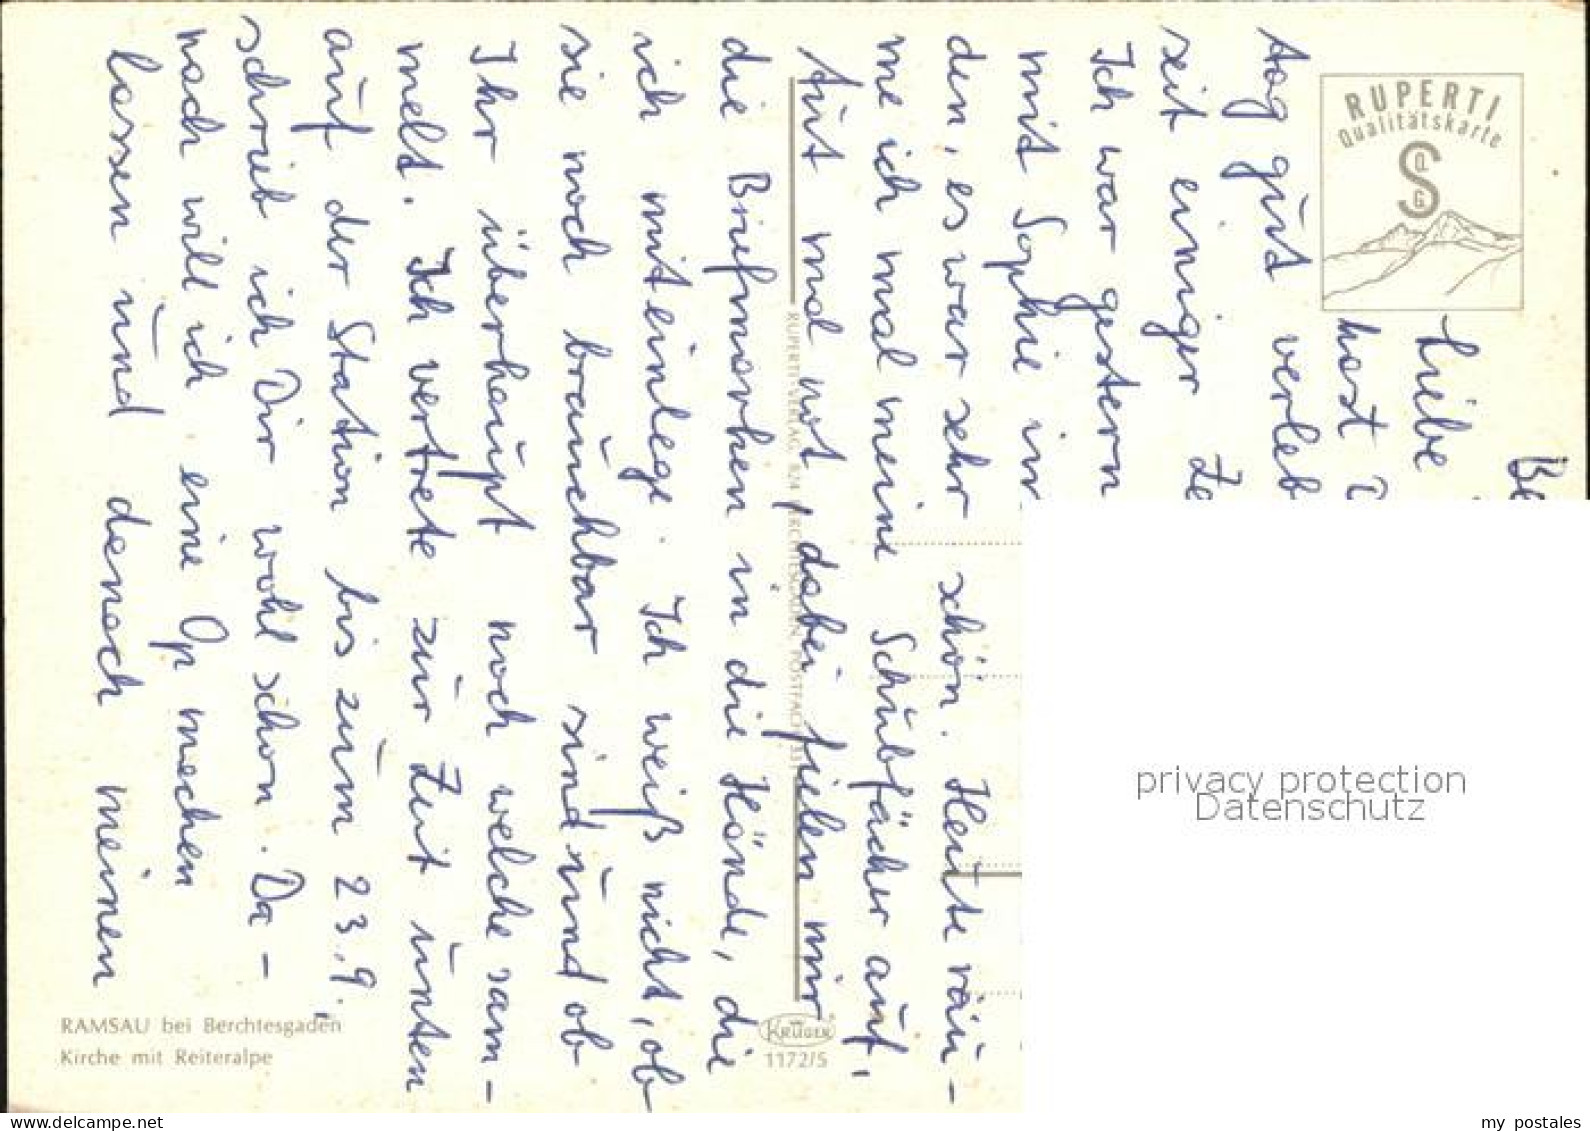 Be
Liebe
hast D
tag gut verleb
seit einiger Ze
Ich war gestern
mit Sophie in
den, es war sehr schön. Heute räu-
me ich mal meine Schubfächer auf,
tut mal not, dabei fielen mir
die Briefmarken in die Hände, die
ich mit einlege. Ich weiß nicht, ob
sie noch brauchbar sind und ob
Ihr überhaupt noch welche sam-
melt. Ich vertrete zur Zeit unten
auf der Station bis zum 23.9.,
schrieb ich Dir wohl schon. Da-
nach will ich eine Op machen
lassen und danach meinen
RUPERTI
Qualitätskarte
S
Q
G
RUPERTI-VERLAG, 824 BERCHTESGADEN, POSTFACH 331
RAMSAU bei Berchtesgaden
Kirche mit Reiteralpe
KRÜGER
1172/5
privacy protection
Datenschutz
www.delcampe.net
my postales